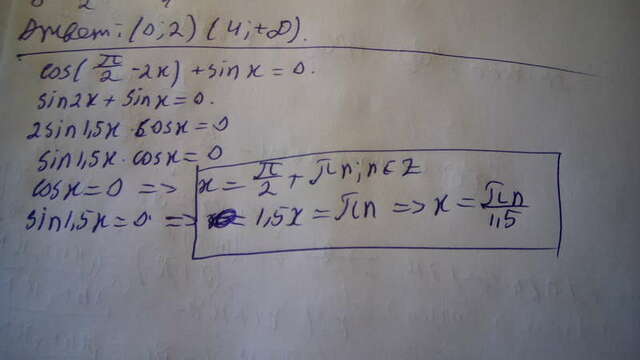 Ответ: (0; 2) (4; +∞).
cos(π/2 - 2x) + sin x = 0.
sin2x + sin x = 0.
2sin1,5x · cosx = 0
sin1,5x · cosx = 0
cosx = 0 => x = π/2 + πn; n∈Z
sin1,5x = 0 => 1,5x = πn => x = πn/1,5